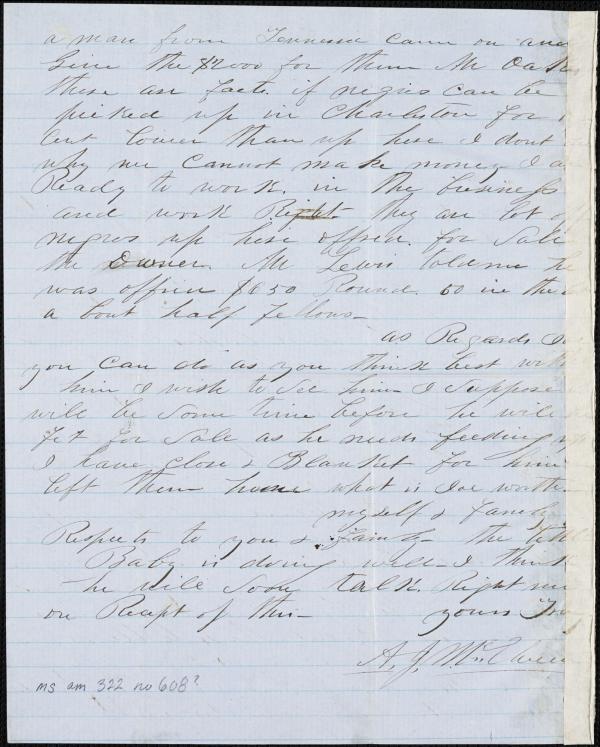 a man from Tennessee came on and
Give the $7000 for them Mr Oakes
these are facts. if negros can be
picked up in Charleston for
cent lower than up here I dont
why we cannot make money I a
Ready to work. in the business
and work Right they are lot of
negros up here offered. for Sale
the owner. Mr Lewis told me he
was offerd $650 Round. 60 in the
a bout half fellows—
as Regards Joe
you can do as you think best with
him I wish to See him— I suppose
will be Some time before he will
fit for Sale as he needs feeding up
I have Close & Blanket for him
left them home what is Joe worth—
myself & Family
Respects to you & Family— the little
Baby is doing well—I think
he will Soon talk. Right me
on Recept of this— yours
A. J. Mc
ms am 322 no 608?